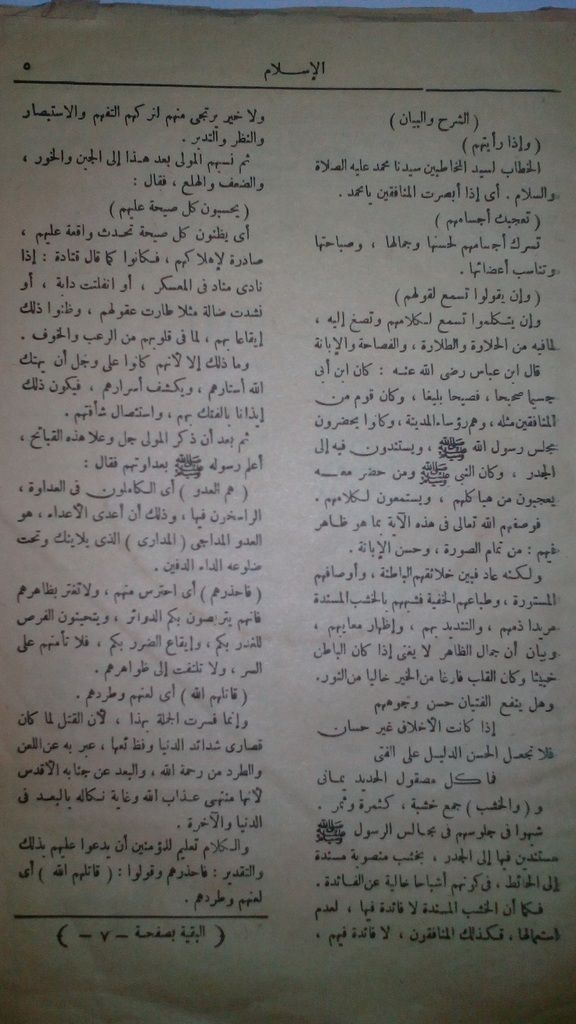 الإسلام
٥
( الشرح والبيان )
( وإذا رأيتهم )
الخطاب لسيد المخاطبين سيدنا محمد عليه الصلاة
والسلام . أى إذا أبصرت المنافقين يا محمد .
( تعجبك أجسامهم )
تسرك أجسامهم لحسنها وجمالها ، وصباحتها
وتناسب أعضائها .
( وإن يقولوا تسمع لقولهم )
وإن يتكلموا تسمع لكلامهم وتصغ إليه ،
لما فيه من الحلاوة والطلاوة ، والفصاحة والإبانة
قال ابن عباس رضى الله عنه : كان ابن أبى
جسيما صحيحا ، فصيحا بليغا ، وكان قوم من
المنافقين مثله ، وهم رؤساء المدينة ، وكانوا يحضرون
مجلس رسول الله ﷺ ، ويستندون فيه إلى
الجدر ، وكان النبى ﷺ ومن حضر معه
يعجبون من هياكلهم ، ويستمعون لكلامهم .
فوصفهم الله تعالى فى هذه الآية بما هو ظاهر
فيهم : من تمام الصورة ، وحسن الإبانة .
ولكنه عاد فبين خلائقهم الباطنة ، وأوصافهم
المستورة ، وطباعهم الخفية فشبههم بالخشب المسندة
مريدا ذمهم ، والتنديد بهم ، وإظهار معايبهم ،
وبيان أن جمال الظاهر لا يغنى إذا كان الباطن
خبيثا وكان القلب فارغا من الخير خاليا من النور .
وهل ينفع الفتيان حسن وجوههم
إذا كانت الأخلاق غير حسان
فلا تجعل الحسن الدليل على الفتى
فما كل مصقول الحديد يمانى
و ( والخشب ) جمع خشبة ، كثمرة وثمر .
شبهوا فى جلوسهم فى مجالس الرسول ﷺ
مستندين فيها إلى الجدر ، بخشب منصوبة مسندة
إلى الحائط ، فى كونهم أشباحا خالية عن الفائدة .
فكما أن الخشب المسندة لا فائدة فيها ، لعدم
استعمالها ، فكذلك المنافقون ، لا فائدة فيهم ،
ولا خير يرتجى منهم لتركهم التفهم والاستبصار
والنظر والتدبر .
ثم نسبهم المولى بعد هذا إلى الجبن والخور ،
والضعف والهلع ، فقال :
( يحسبون كل صيحة عليهم )
أى يظنون كل صيحة تحدث واقعة عليهم ،
صادرة لإهلاكهم ، فكانوا كما قال قتادة : إذا
نادى مناد فى المعسكر ، أو انفلتت دابة ، أو
نشدت ضالة مثلا طارت عقولهم ، وظنوا ذلك
إيقاعا بهم ، لما فى قلوبهم من الرعب والخوف .
وما ذلك إلا لأنهم كانوا على وجل أن يهتك
الله أستارهم ، ويكشف أسرارهم ، فيكون ذلك
إيذانا بالفتك بهم ، واستئصال شأفتهم .
ثم بعد أن ذكر المولى جل وعلا هذه القبائح ،
أعلم رسوله ﷺ بعداوتهم فقال :
( هم العدو ) أى الكاملون فى العداوة ،
الراسخون فيها ، وذلك أن أعدى الأعداء ، هو
العدو المداجى ( المدارى ) الذى يلاينك وتحت
ضلوعه الداء الدفين .
( فاحذرهم ) أى احترس منهم ، ولا تغتر بظاهرهم
فانهم يتربصون بكم الدوائر ، ويتحينون الفرص
للغدر بكم ، وإيقاع الضرر بكم ، فلا تأمنهم على
السر ، ولا تلتفت إلى ظواهرهم .
( قاتلهم الله ) أى لعنهم وطردهم .
وإنما فسرت الجملة بهذا ، لأن القتل لما كان
قصارى شدائد الدنيا وفظائعها ، عبر به عن اللعن
والطرد من رحمة الله ، والبعد عن جنابه الأقدس
لأنها منتهى عذاب الله وغاية نكاله بالبعد فى
الدنيا والآخرة .
والكلام تعليم للمؤمنين أن يدعوا عليهم بذلك
والتقدير : فاحذرهم وقولوا : ( قاتلهم الله ) أى
لعنهم وطردهم .
( البقية بصفحة – ٧ – )